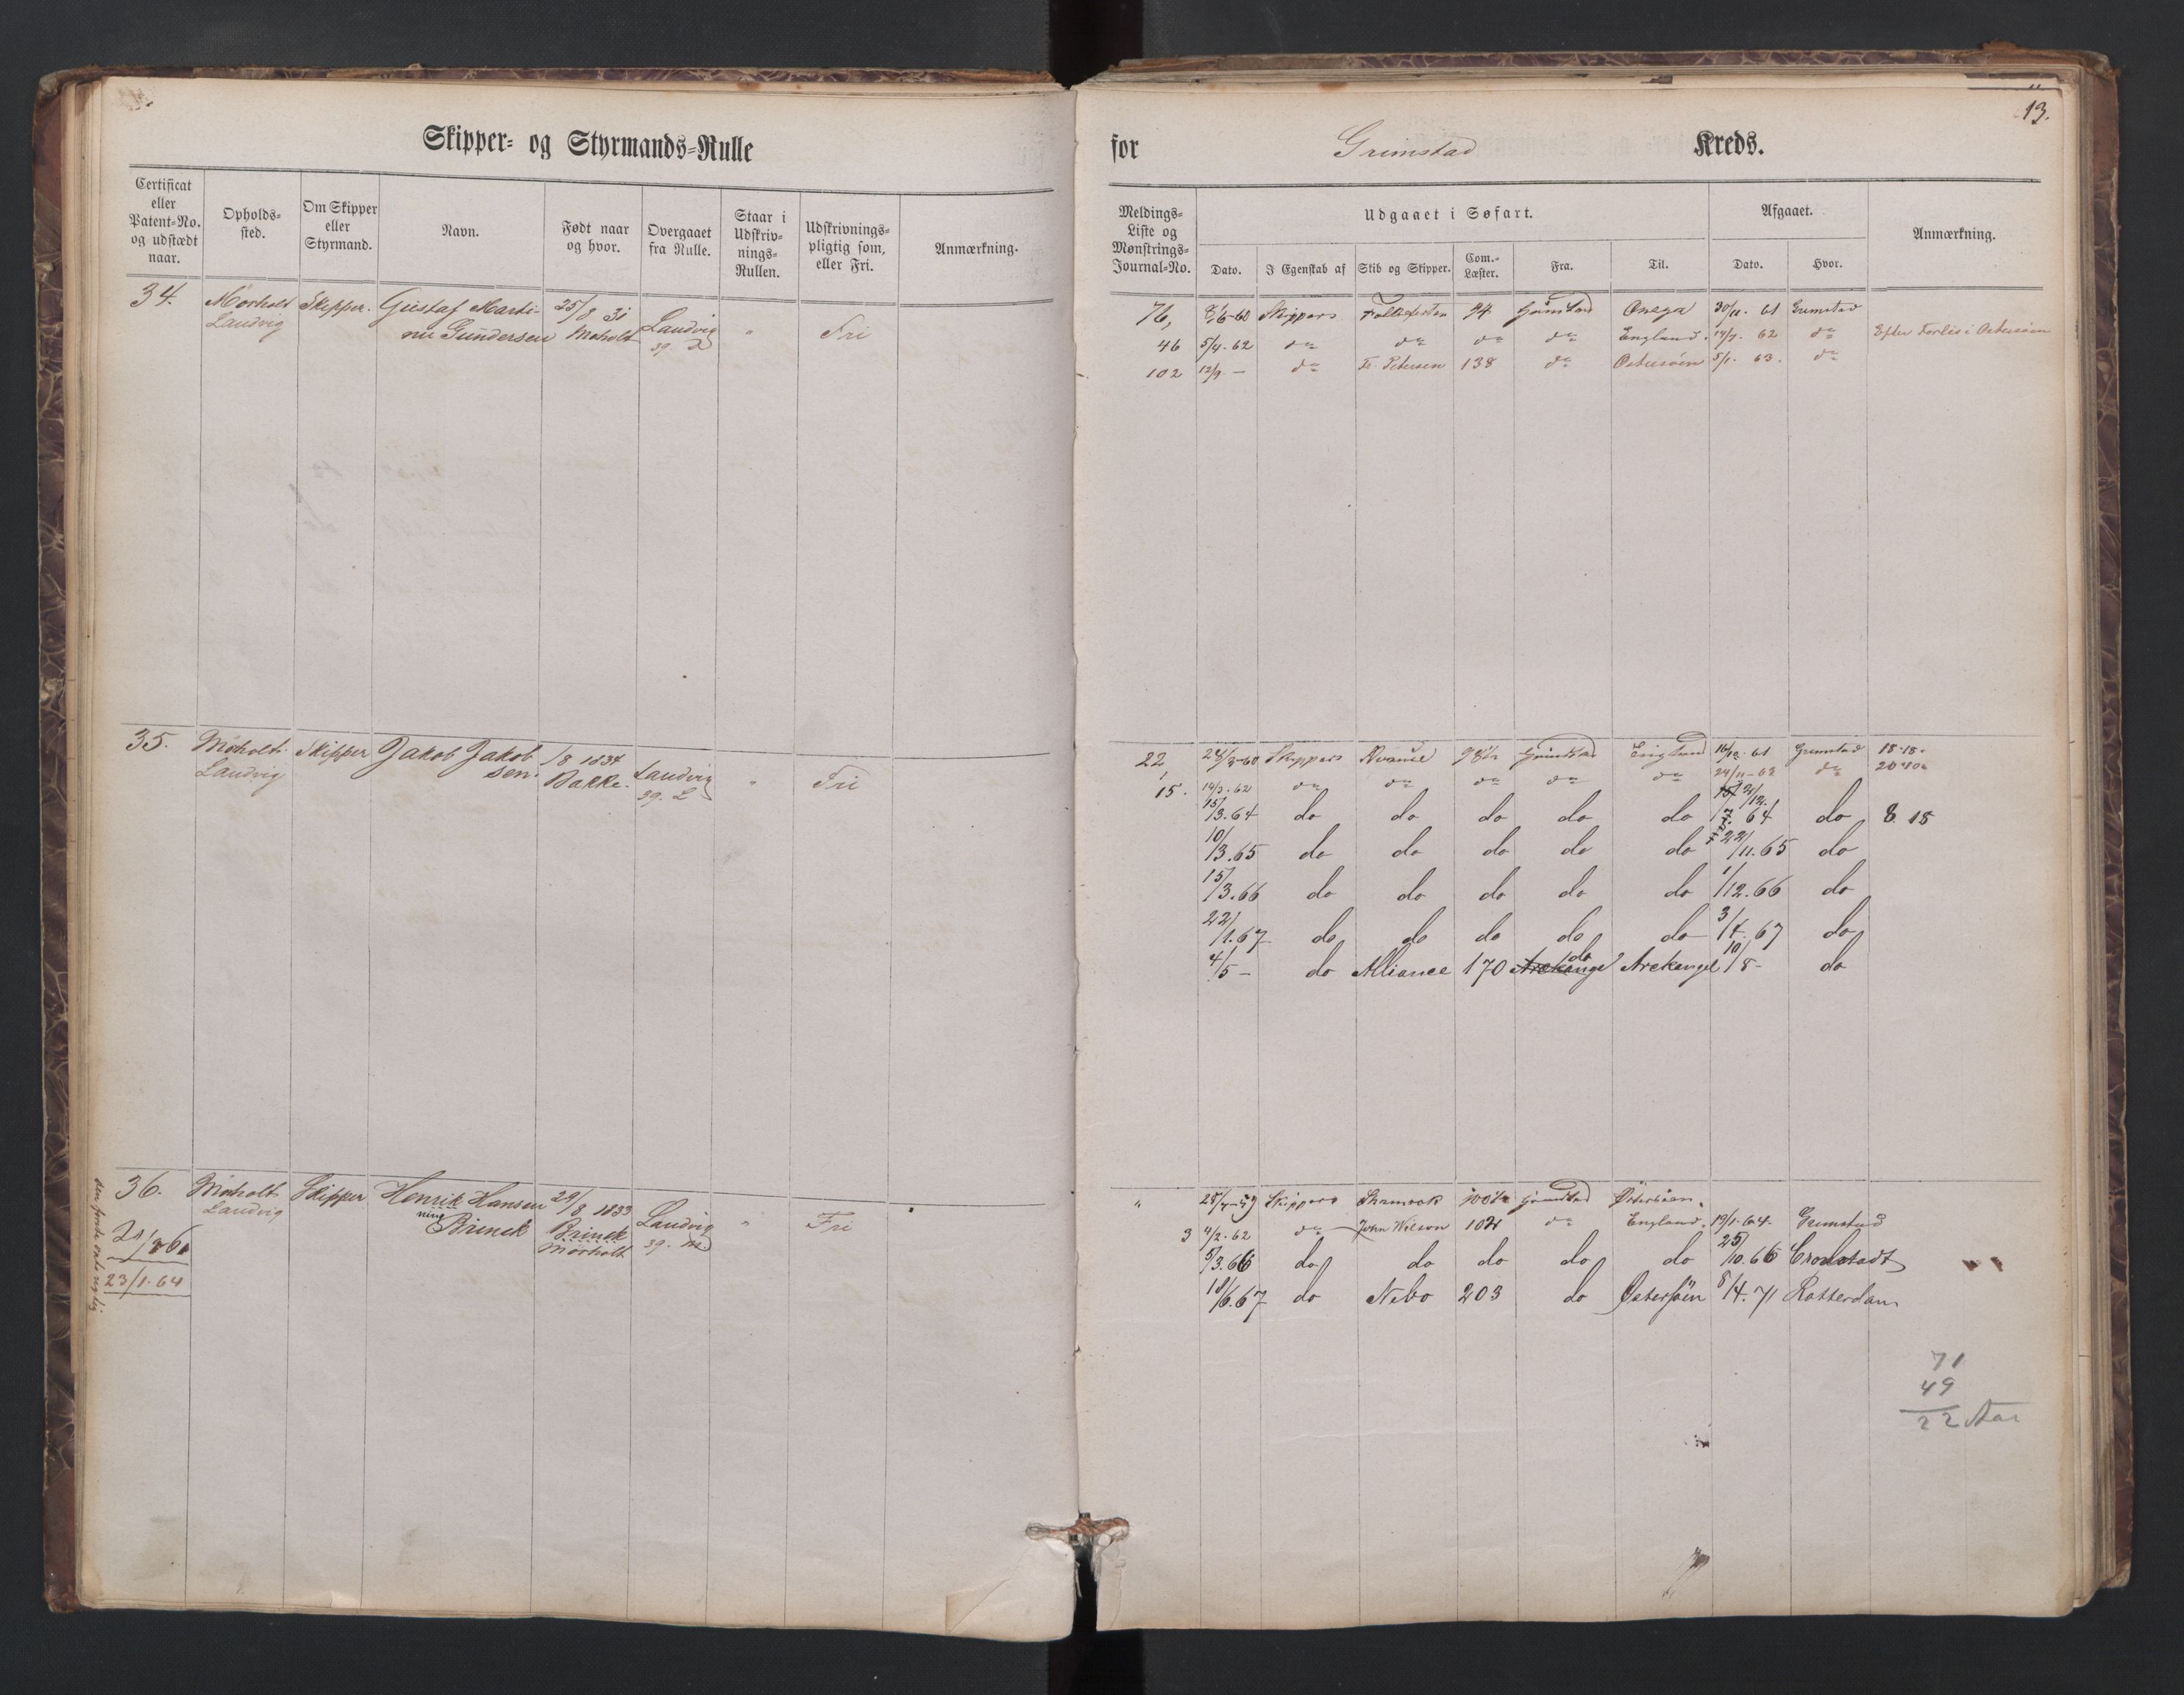 13.
Skipper- og Styrmands-Rulle for Grimstad Kreds.
Certificat eller Patent-No. og udstædt naar.
Opholds-sted.
Om Skipper eller Styrmand.
Navn.
Født naar og hvor.
Overgaaet fra Rulle.
Staar i Udskriv-nings-Rullen.
Udskrivnings-pligtig som, eller Fri.
Anmærkning.
Meldings-Liste og Mønstrings-Journal-No.
Udgaaet i Søfart.
Dato. I Egenskab af Skib og Skipper. Com.-Læster. Fra. Til.
Afgaaet.
Dato. Hvor.
Anmærkning.
34. Morholt Skipper. Gustaf Marti- 25/8 31 Landvig " Fri
Landvig nu Gundersen Moholt 39.
76, 8/6-60 Skippers 94 Grimstad Onega 30/11. 61 Grimstad
46 5/4. 62 do do do do England. 62 do Efter Forlis i Østersøen
102 12/9. — do Fr. Petersen 138 do Østersøen 5/1. 63. do
35. Moholt Skipper Jakob Jakob /8 1834 Landvig " Fri
Landvig sen. Bakke. 39. L
22, 24/3-60 Skippers 98½ Grimstad England 16/12. 61 Grimstad 18-18.
15. 14/3. 62 do do do do do 24/11-62 do
15/3. 64 do do do do do 64 do 8. 18
10/3. 65 do do do do do 22/11. 65 do
15/3. 66 do do do do do 1/12. 66 do
22/1. 67 do do do do do 3/4. 67 do
4/5 — do Alliance 170 Arckangel do Arckangel 10/8 - do
36. Moholt Skipper Henrik Hansen 29/8 1833 Landvig " Fri
Landvig ning Brinck Brinck 39.
Morholt
23/1. 64
" 25/4-59 Skippers Shamrock 100½ Grimstad Østersøen.
3 4/2. 62 do John Wilson 102 do England. 19/1. 64. Grimstad
5/3. 66 do do do do do 25/10. 66 Cronstadt
18/6. 67 do Nebo 203 do Østersøen 8/4. 71 Rotterdam
71
49
22 Aar